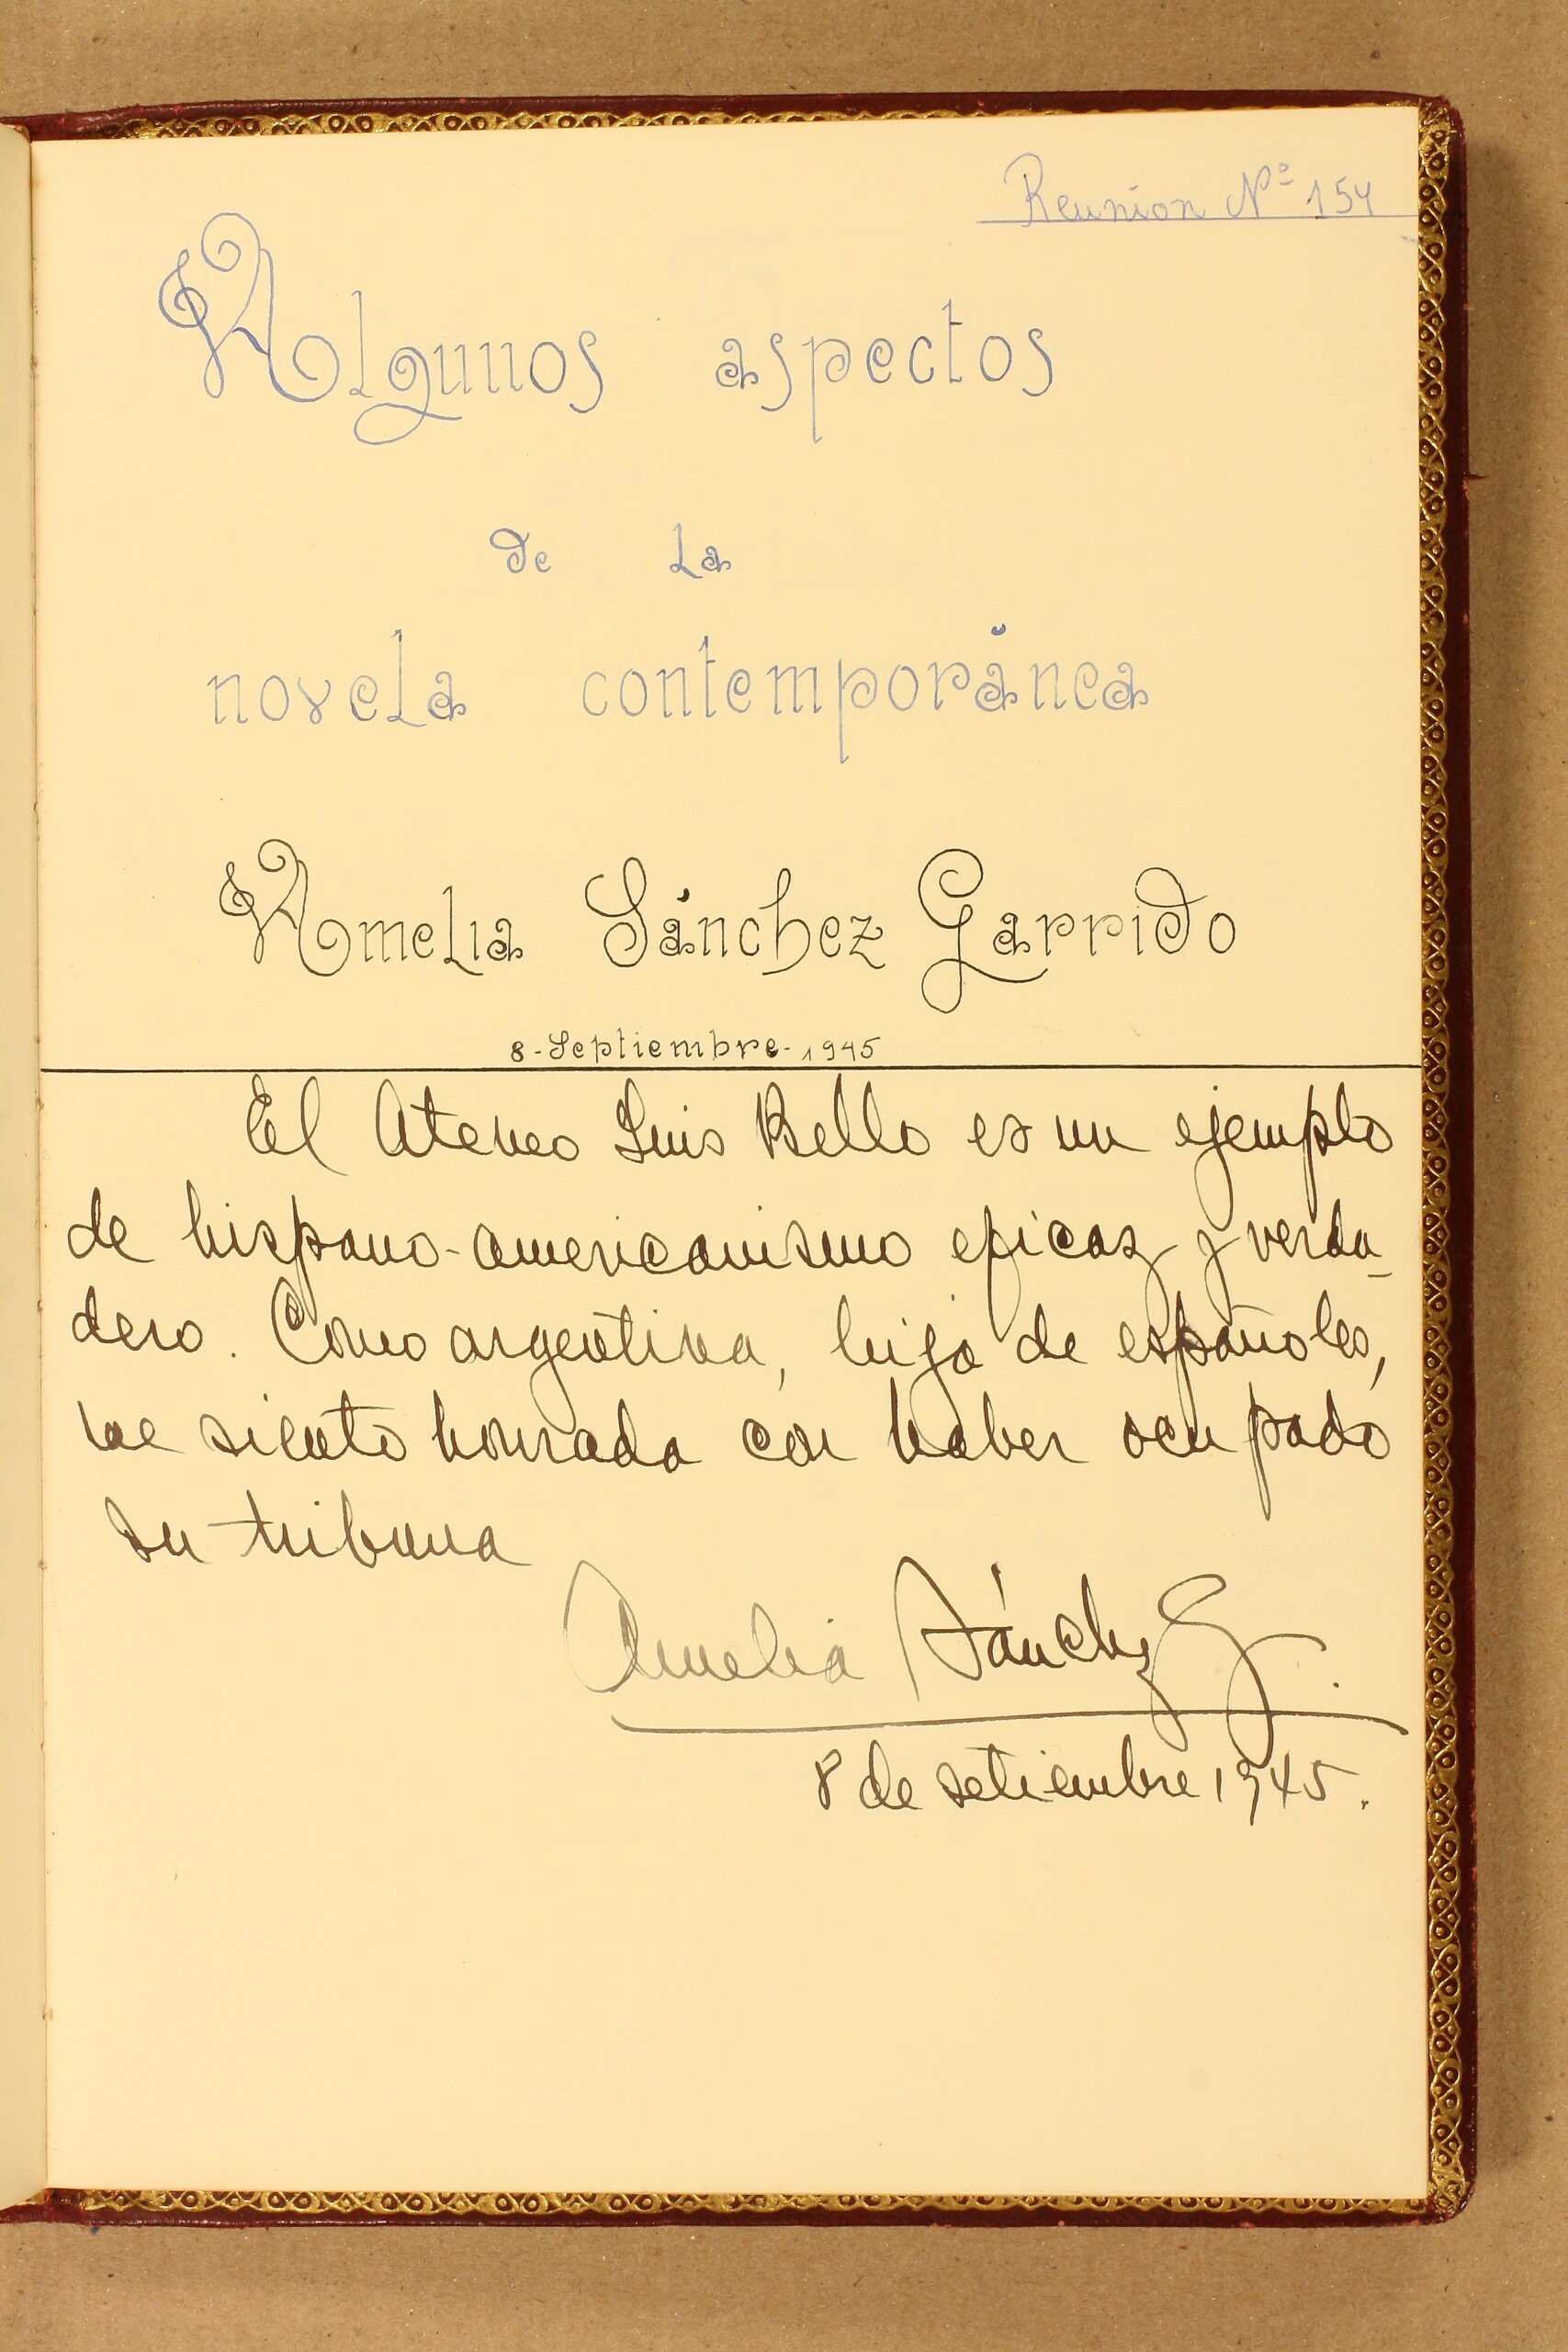 Reunion Nº 154
Algunos aspectos
de la
novela contemporánea
Amelia Sánchez Garrido
8-Septiembre-1945
El Ateneo Luis Bello es un ejemplo
de hispano-americanismo eficaz y verda-
dero. Como argentina, hija de españoles,
me siento honrada con haber ocupado
su tribuna
Amelia Sánchez G.
8 de setiembre 1945.